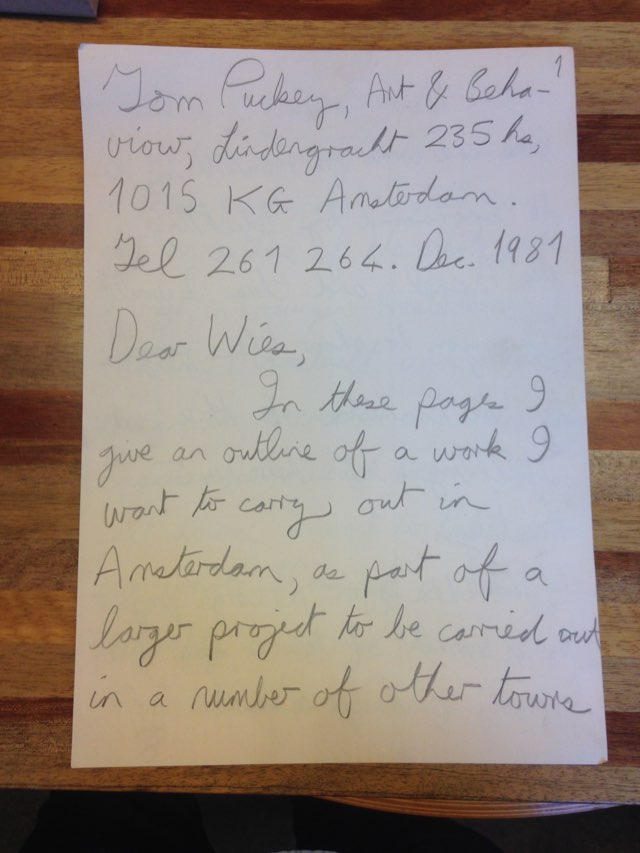 1
Tom Puckey, Art & Beha-
viour, Lindengracht 235 hs,
1015 KG Amsterdam.
Tel 261 264. Dec. 1981
Dear Wies,
In these pages I
give an outline of a work I
want to carry out in
Amsterdam, as part of a
larger project to be carried out
in a number of other towns